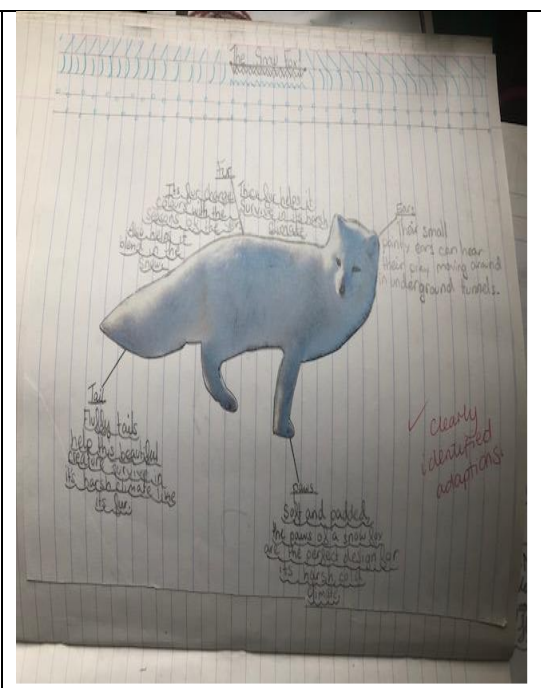 The Snow Fox
Fur
Its fur changes
colours with the
seasons as the
also helps it
blend in the
snow.
Its fur helps it
survive in its harsh
climate
Ears
Their small
pointy ears can hear
their prey moving around
in underground tunnels.
Tail
Fluffy tails
help this beautiful
creature survive in
it's harsh climate like
its fur.
paws
Soft and padded,
the paws of a snow fox
are the perfect design for
its harsh cold
climate
✓ clearly
identified
adaptions.